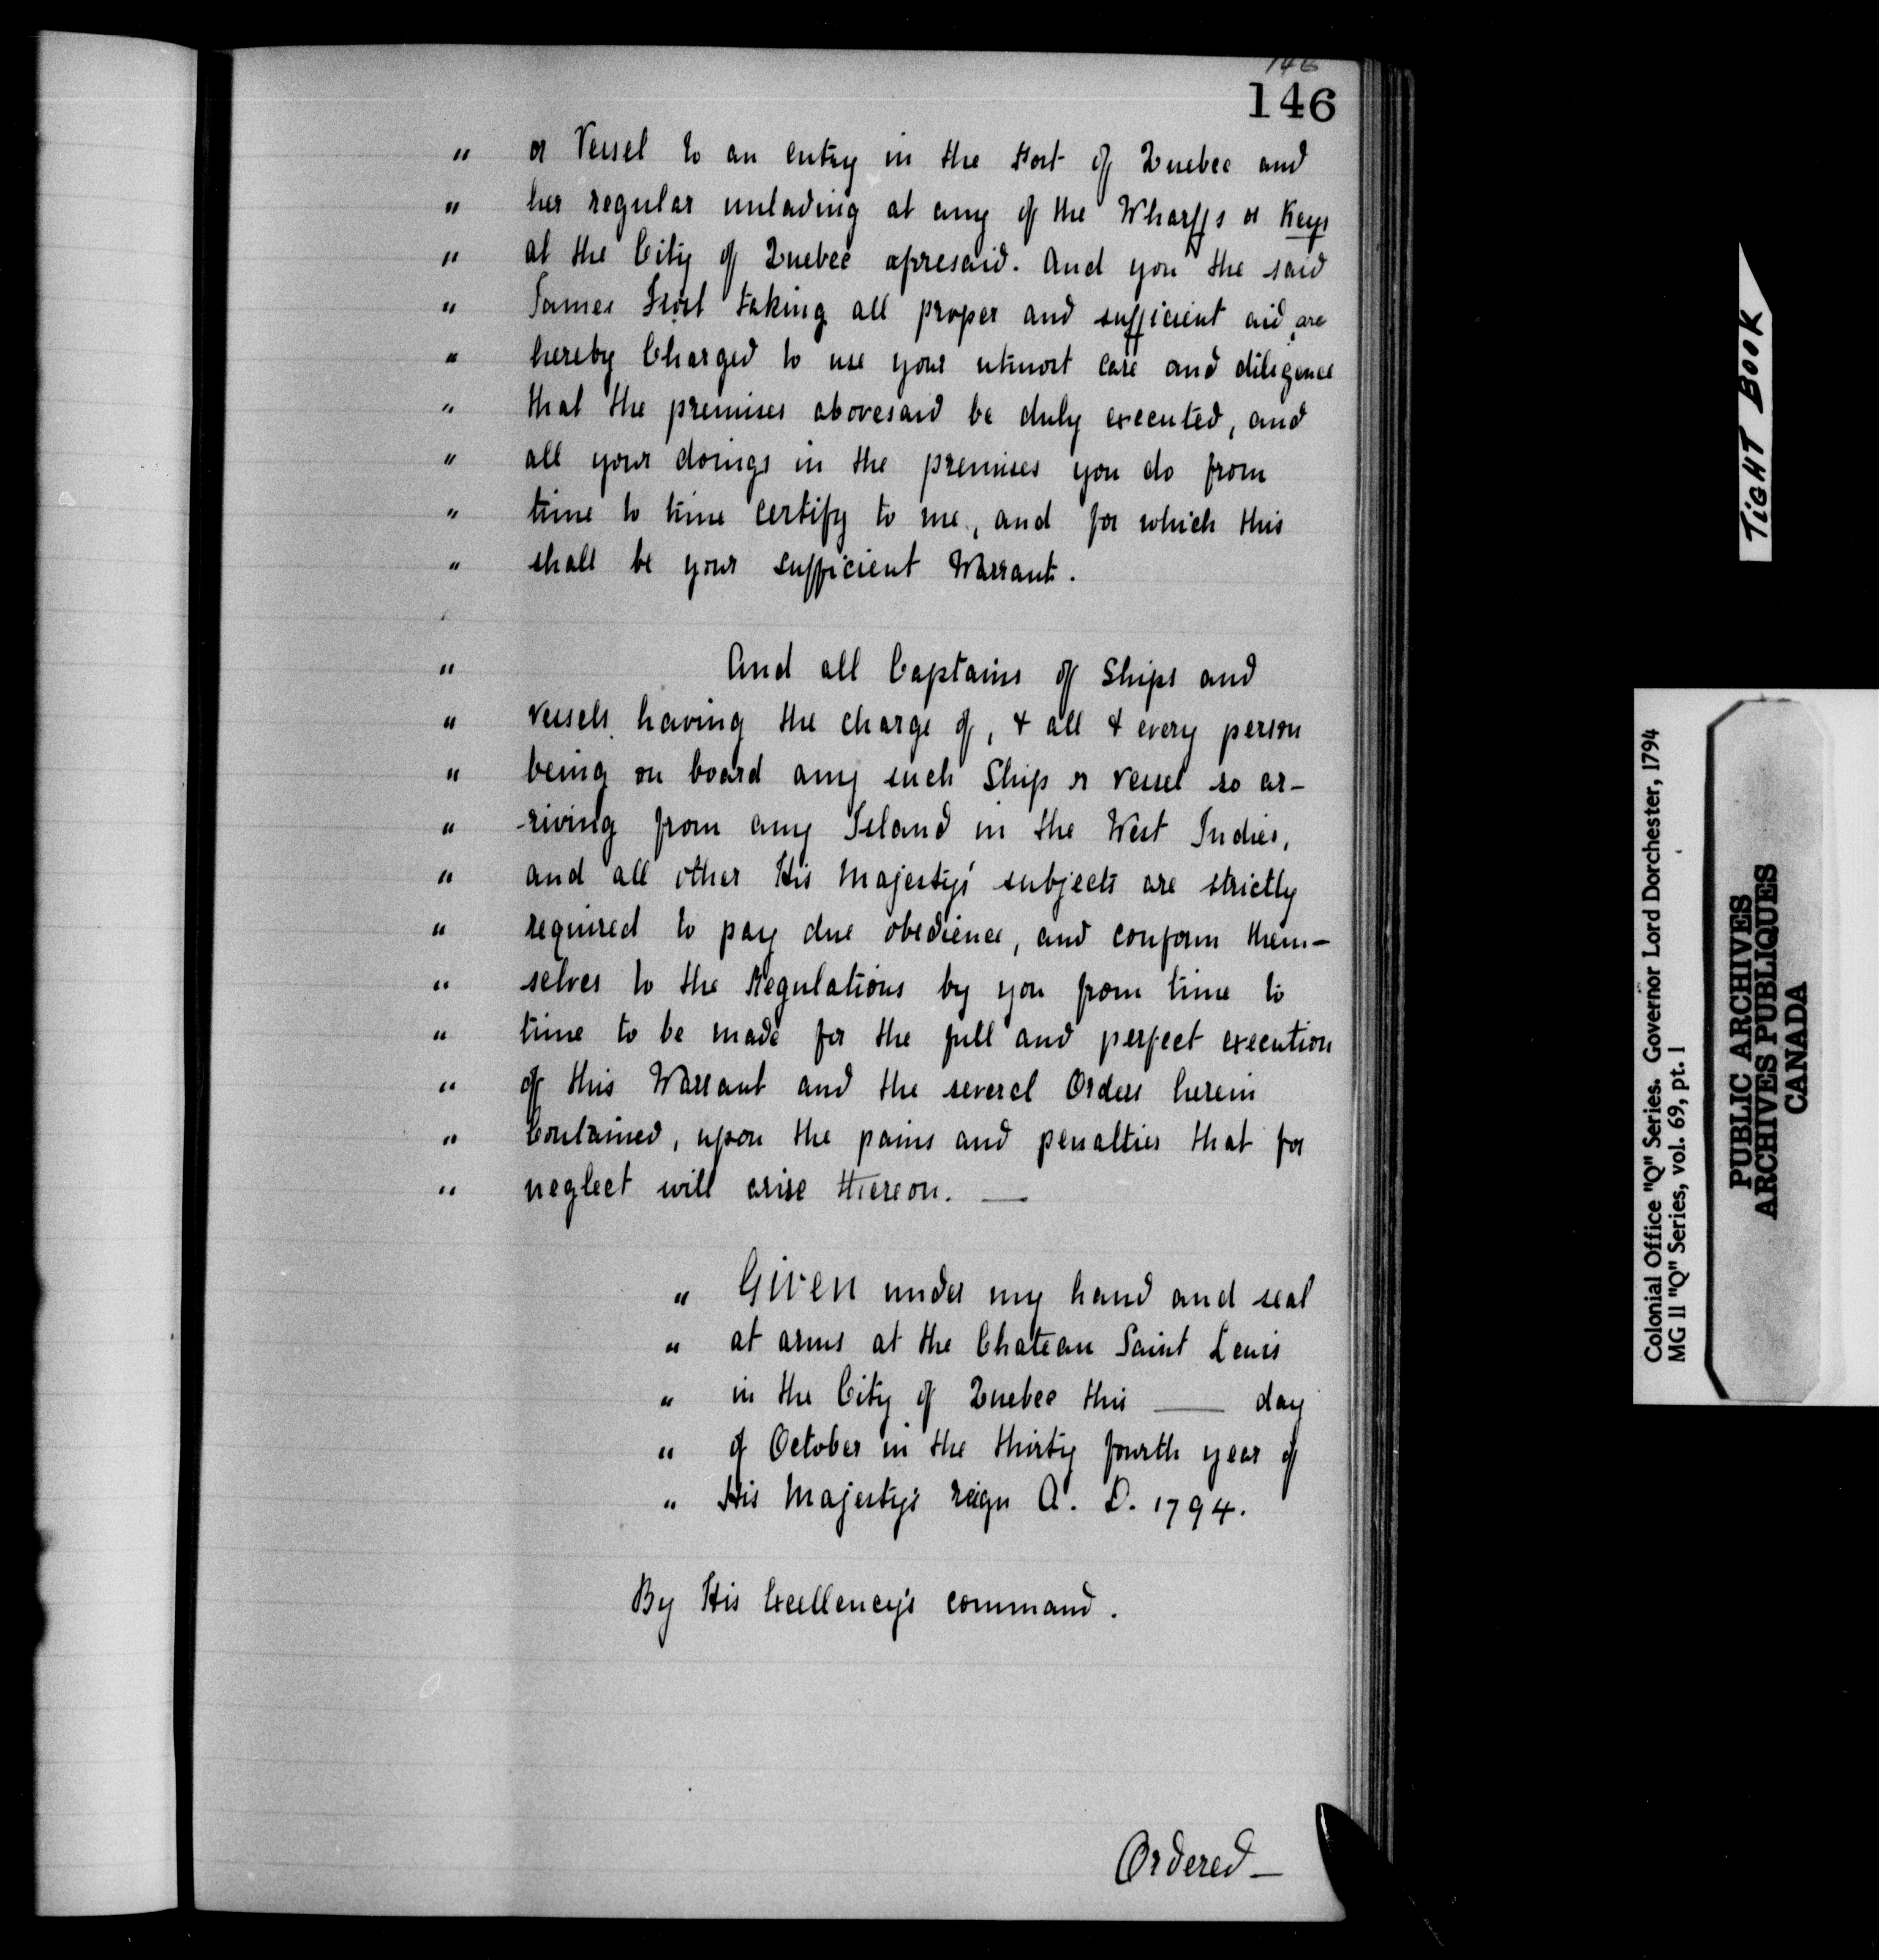 146
146
" or Vessel to an entry in the Port of Quebec and
" her regular unlading at any of the Wharffs or Keys
" at the City of Quebec aforesaid. And you the said
" James Frost taking all proper and sufficient aid, are
" hereby Charged to use your utmost care and diligence
" that the premises abovesaid be duly executed, and
" all your doings in the premises you do from
" time to time certify to me, and for which this
" shall be your sufficient Warrant.
" And all Captains of Ships and
" vessels having the charge of, & all & every person
" being on board any such Ship or vessel so ar-
" -riving from any Island in the West Indies,
" and all other His Majesty's subjects are strictly
" required to pay due obedience, and conform them-
" selves to the Regulations by you from time to
" time to be made for the full and perfect execution
" of this Warrant and the several Orders herein
" Contained, upon the pains and penalties that for
" neglect will arise thereon. —
" Given under my hand and seal
" at arms at the Chateau Saint Lewis
" in the City of Quebec this —— day
" of October in the thirty fourth year of
" His Majesty's reign A. D. 1794.
By His Excellency's command.
Ordered —
TIGHT BOOK
Colonial Office "Q" Series. Governor Lord Dorchester, 1794
MG 11 "Q" Series, vol. 69, pt. 1
PUBLIC ARCHIVES
ARCHIVES PUBLIQUES
CANADA